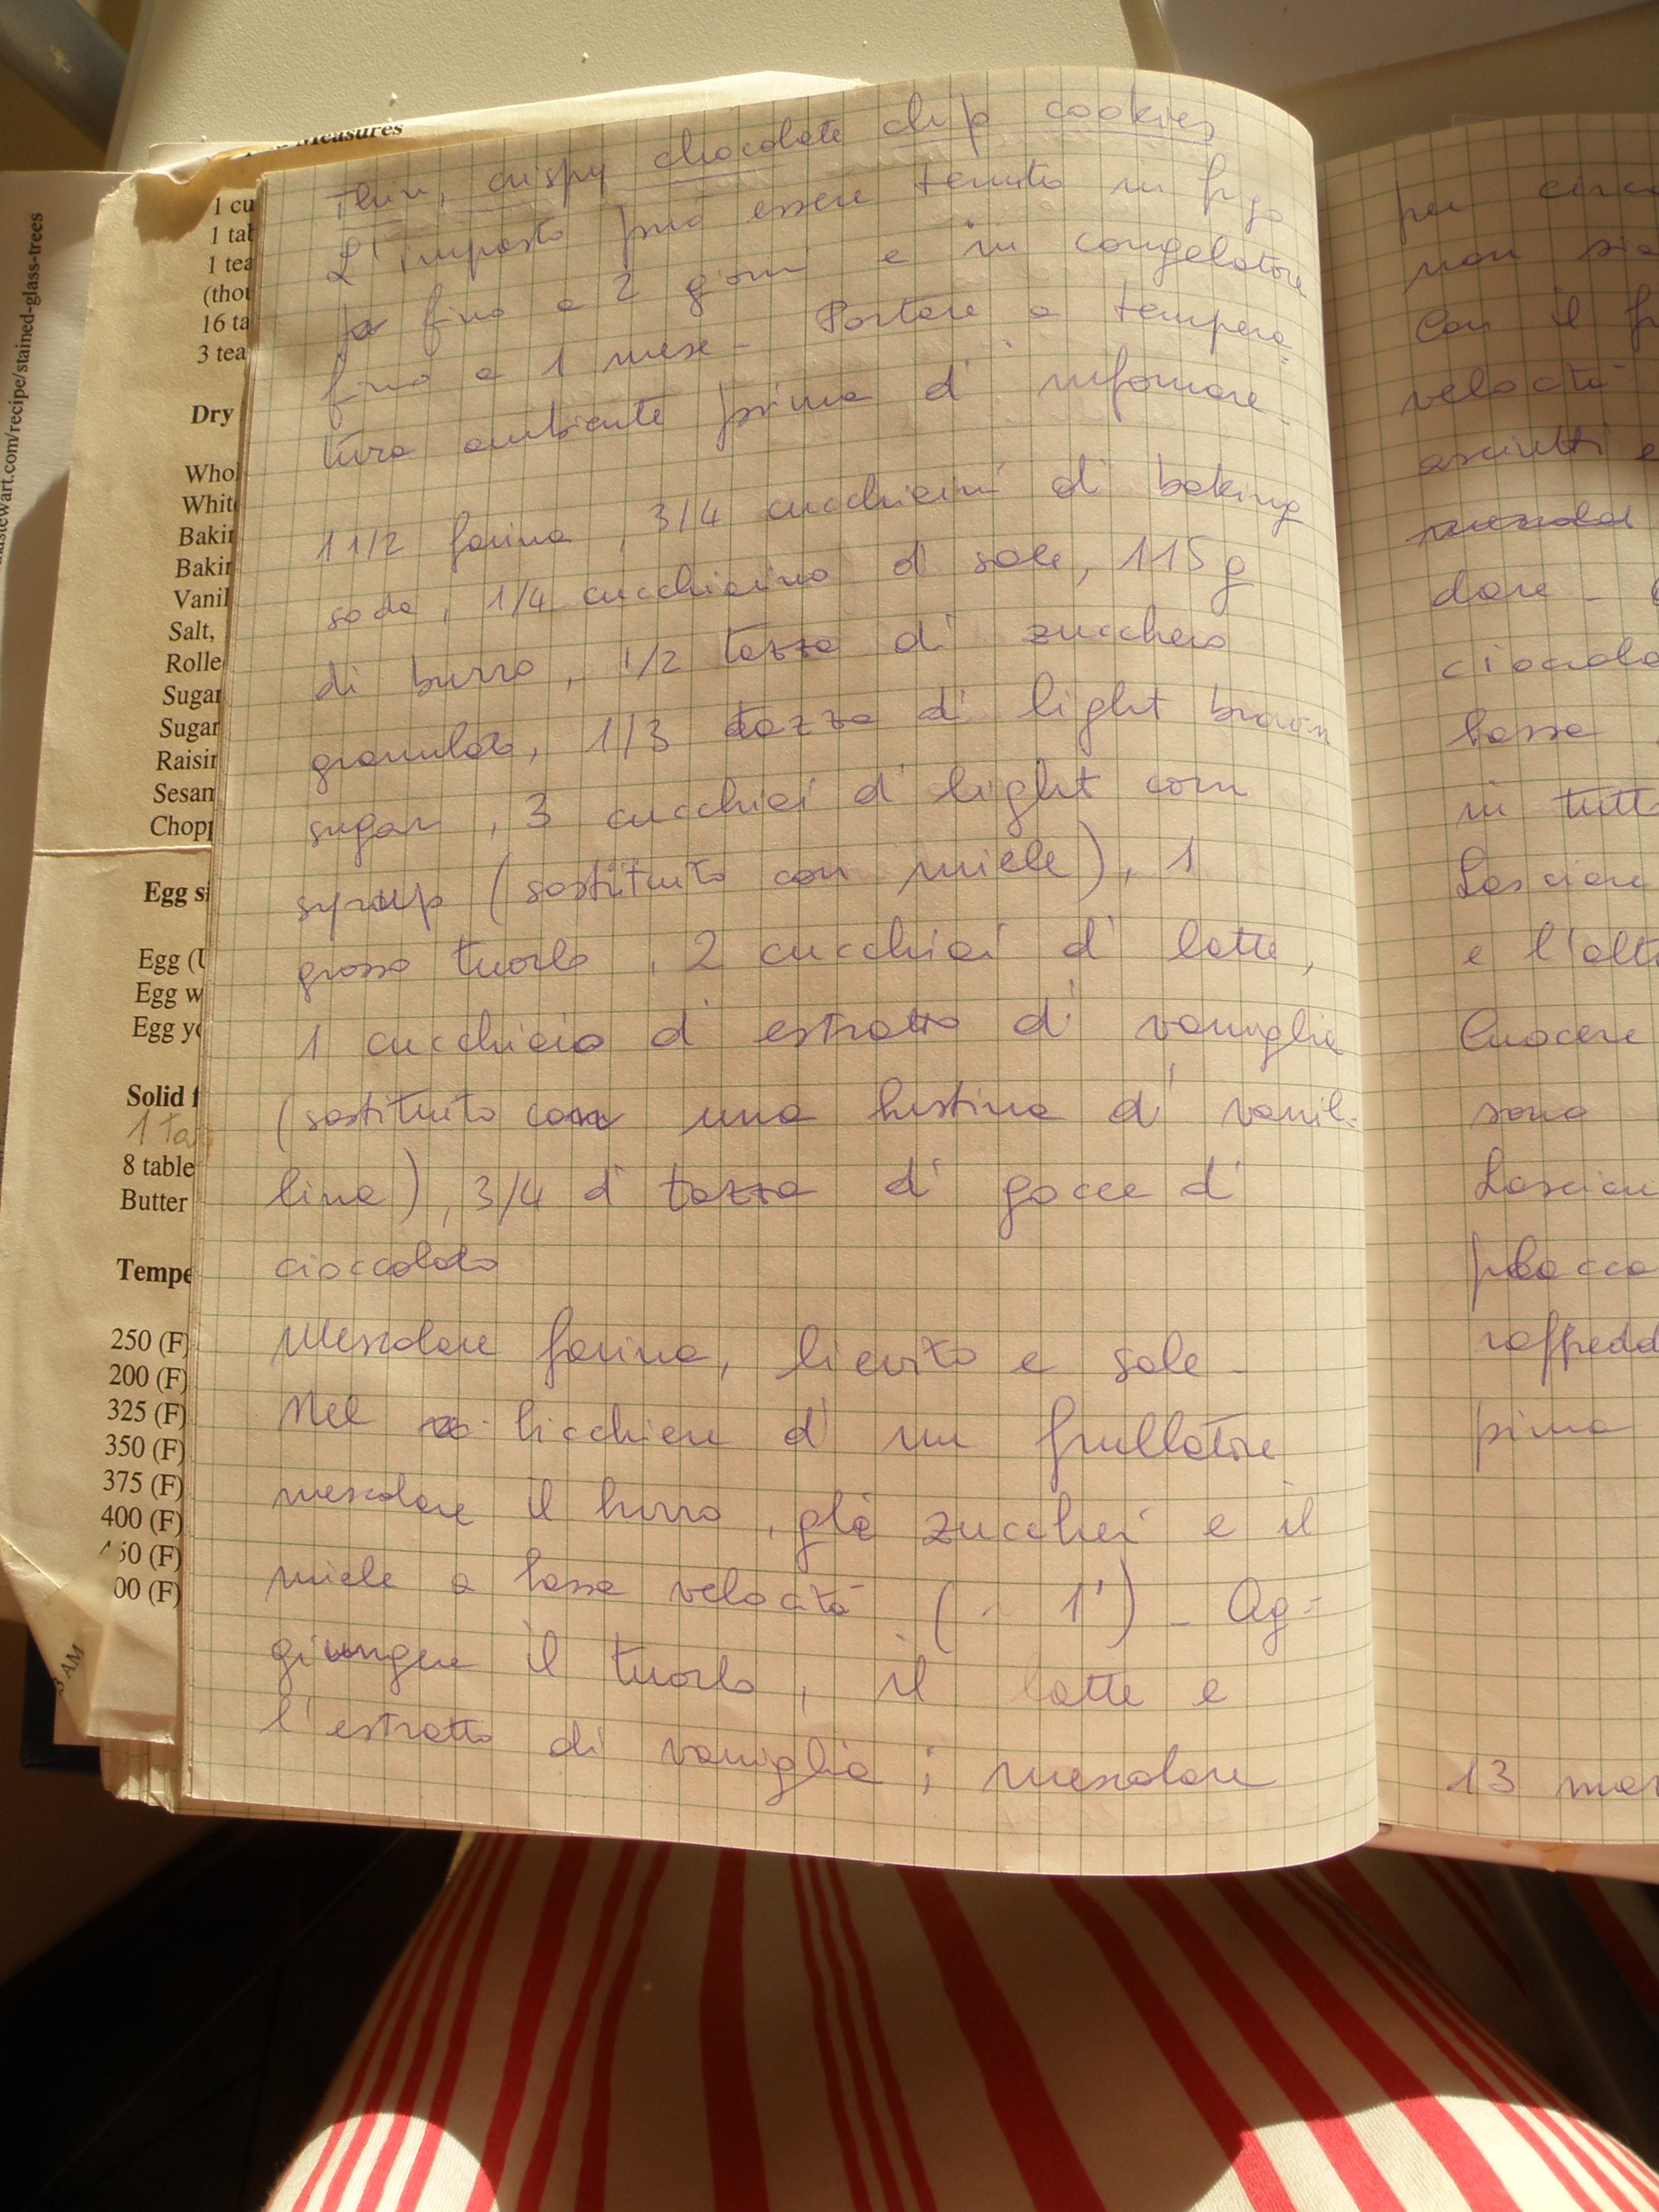 Measures
1 cu
1 tal
1 tea
(thou
16 ta
3 tea
Dry
Whol
White
Bakin
Bakin
Vanil
Salt,
Rolle
Sugar
Sugar
Raisin
Sesam
Chopp
Egg si
Egg (U
Egg w
Egg yo
Solid f
1 Ta
8 table
Butter
Tempe
250 (F)
200 (F)
325 (F)
350 (F)
375 (F)
400 (F)
50 (F)
00 (F)
AM
stewart.com/recipe/stained-glass-trees
Thin, crispy chocolate chip cookies
L'impasto può essere tenuto in frigo
fino a 2 giorni e in congelatore
fino a 1 mese - Portare a tempera=
tura ambiente prima di infornare -
1 1/2 farina, 3/4 cucchiaini di baking
soda, 1/4 cucchiaino di sale, 115 g
di burro, 1/2 tazza di zucchero
granulato, 1/3 tazza di light brown
sugar, 3 cucchiai di light corn
syrup (sostituito con miele), 1
grosso tuorlo, 2 cucchiai di latte,
1 cucchiaio di estratto di vaniglia
(sostituito con una bustina di vanil=
lina), 3/4 di tazza di gocce di
cioccolato
Mescolare farina, lievito e sale -
Nel bicchiere di un frullatore
mescolare il burro, gli zuccheri e il
miele a bassa velocità (1') - Ag=
giungere il tuorlo, il latte e
l'estratto di vaniglia; mescolare
per circa
non sia
Con il fr
velocità
asciutti e
dare -
cioccola
bassa
in tutt
Lasciare
e l'alt
Cuocere
sono
Lasciar
placca
raffredd
prima
13 mar